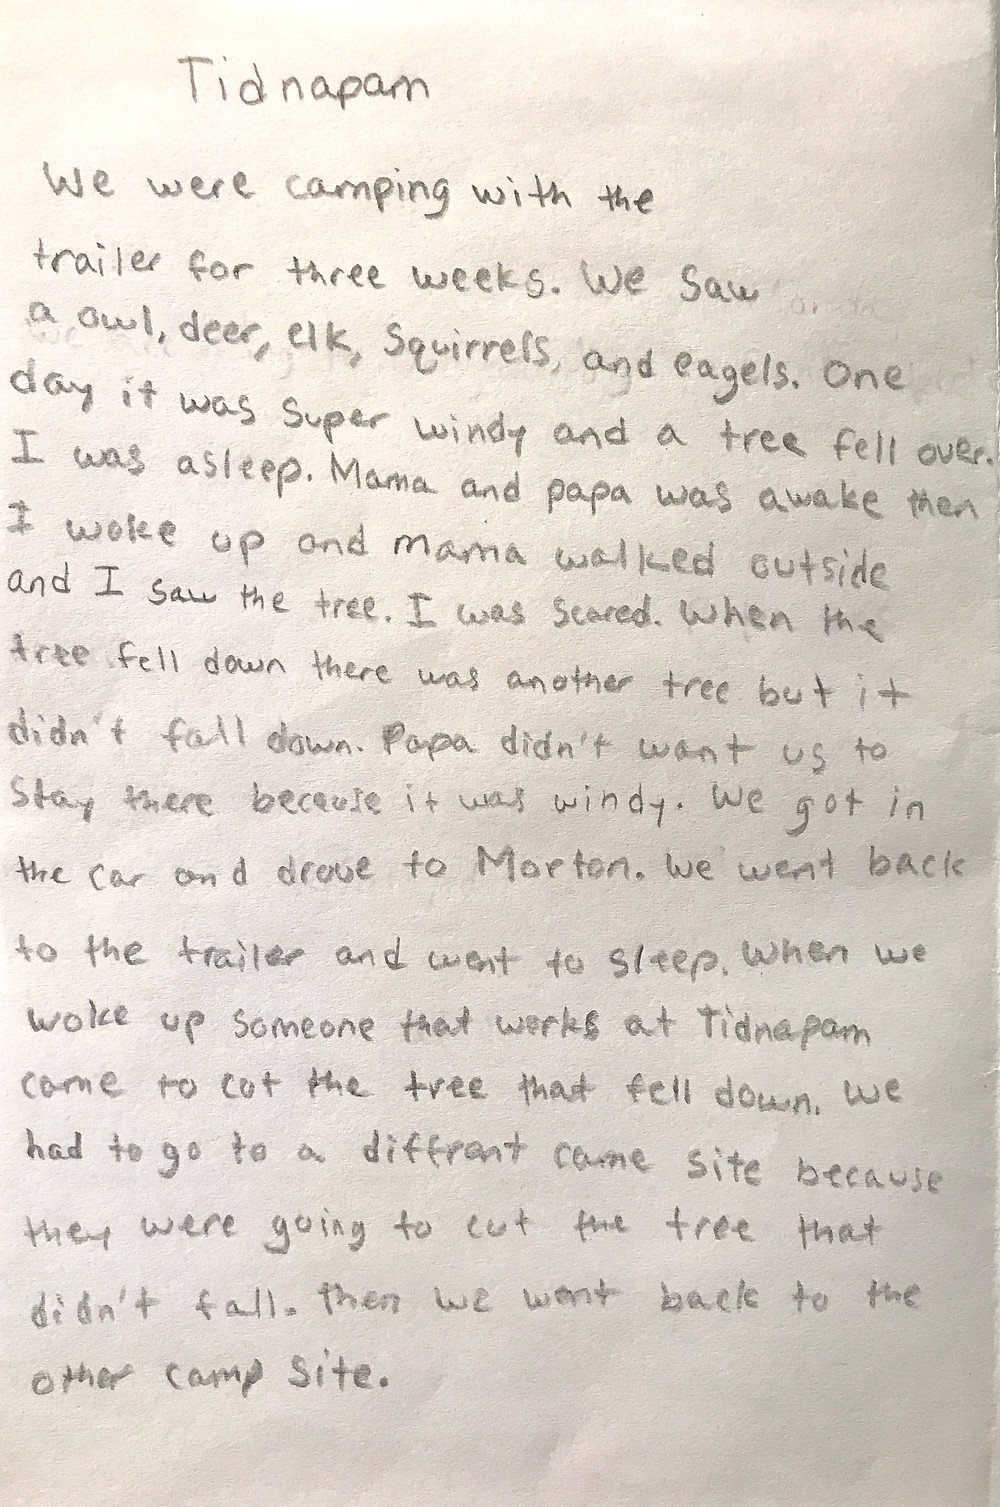 Tidnapam
We were camping with the
trailer for three weeks. We Saw
a owl, deer, elk, Squirrels, and eagels. One
day it was super windy and a tree fell over.
I was asleep. Mama and papa was awake then
I woke up and mama walked outside
and I saw the tree. I was scared. When the
tree fell down there was another tree but it
didn't fall down. Papa didn't want us to
Stay there because it was windy. We got in
the car and drove to Morton. We went back
to the trailer and went to sleep. When we
woke up someone that works at Tidnapam
came to cut the tree that fell down. We
had to go to a diffrent came site because
they were going to cut the tree that
didn't fall. Then we went back to the
other camp site.